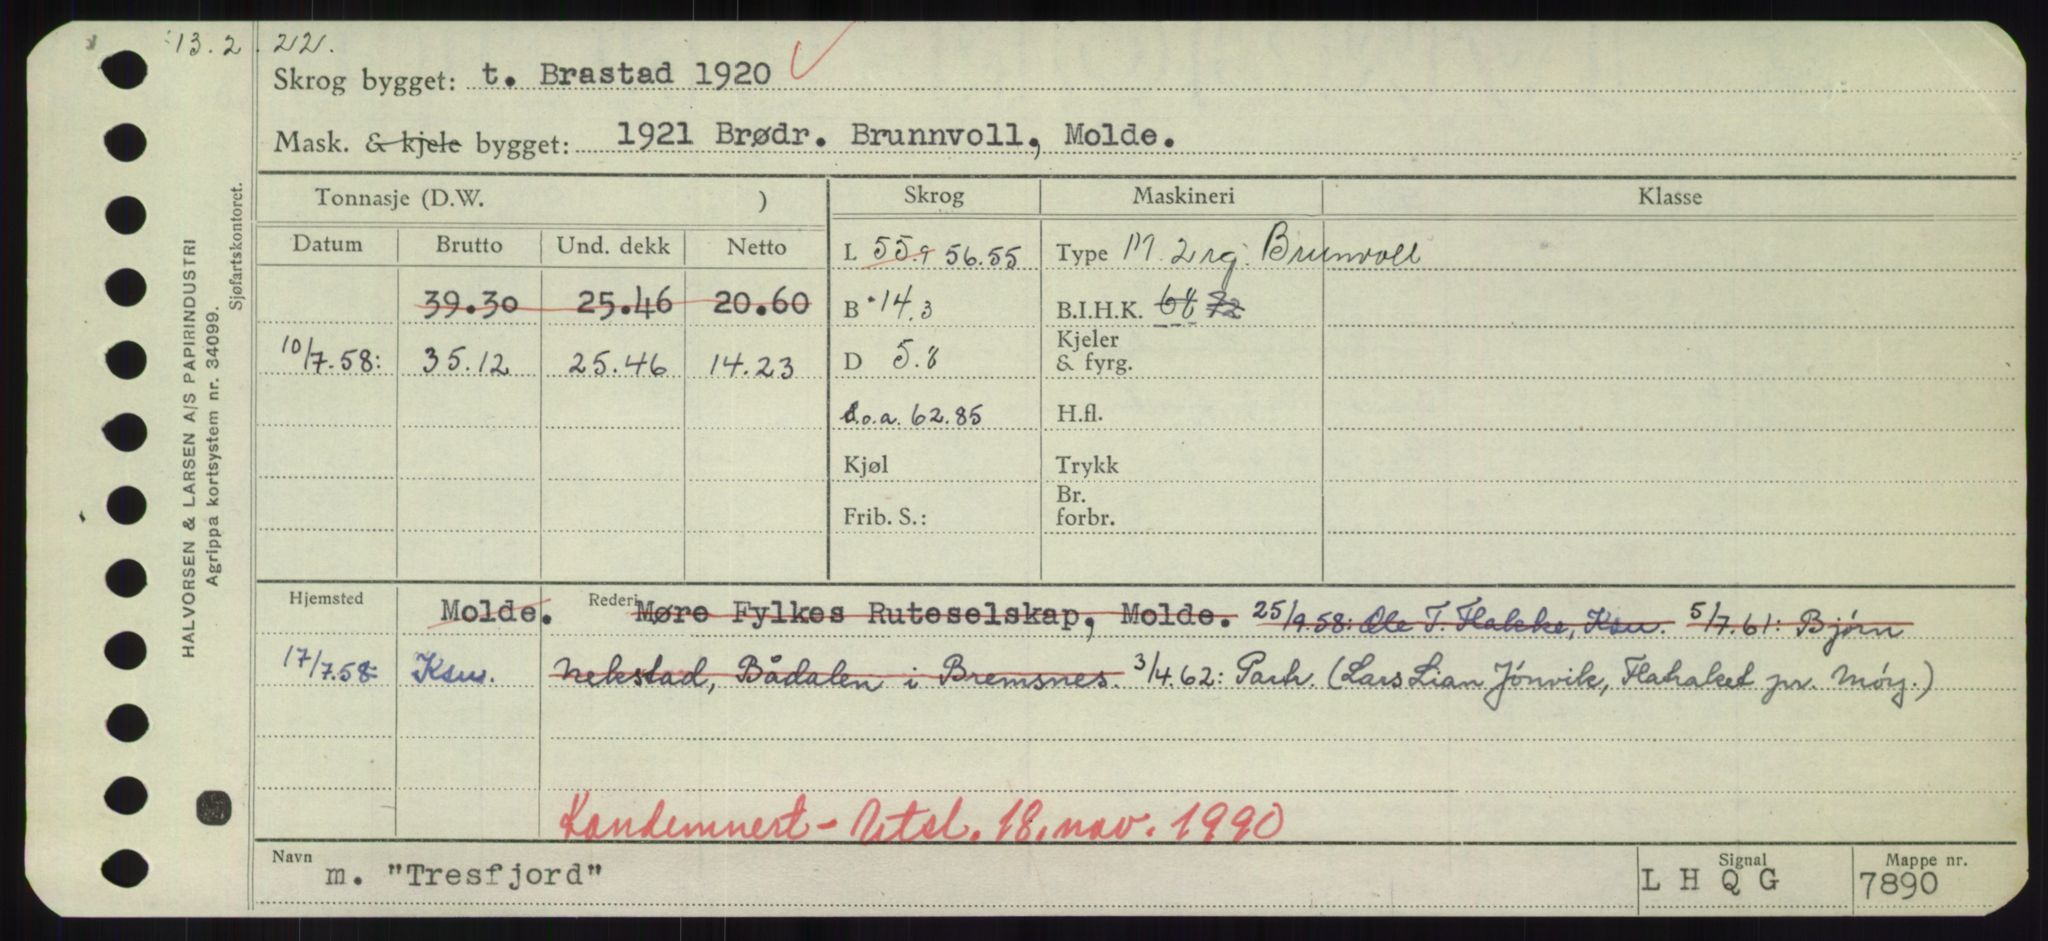 13.2.22.
Skrog bygget: t. Brastad 1920
Mask. & kjele bygget: 1921 Brødr. Brunnvoll, Molde.
Tonnasje (D.W. )
Skrog Maskineri Klasse
Datum Brutto Und. dekk Netto
L 55.9 56.55 Type M. 2 rg. Brunvoll
39.30 25.46 20.60 B 14.3 B.I.H.K. 68 72
10/7.58: 35.12 25.46 14.23 D 5.8 Kjeler & fyrg.
L.o.a. 62.85 H.fl.
Kjøl Trykk
Frib. S.: Br. forbr.
Hjemsted Molde. Rederi Møre Fylkes Ruteselskap, Molde. 25/9.58: Ole T. Flakke, Ksu. 5/7.61: Bjørn
17/7.58: Ksu. Nekstad, Bådalen i Bremsnes. 3/4.62: Partr. (Lars Lian Jónvik, Flatraket pr. Måøy.)
Kondemnert - Utsl. 18. nov. 1990
Navn m. "Tresfjord" Signal L H Q G Mappe nr. 7890
HALVORSEN & LARSEN A/S PAPIRINDUSTRI
Agrippa kortsystem nr. 34099.
Sjøfartskontoret.